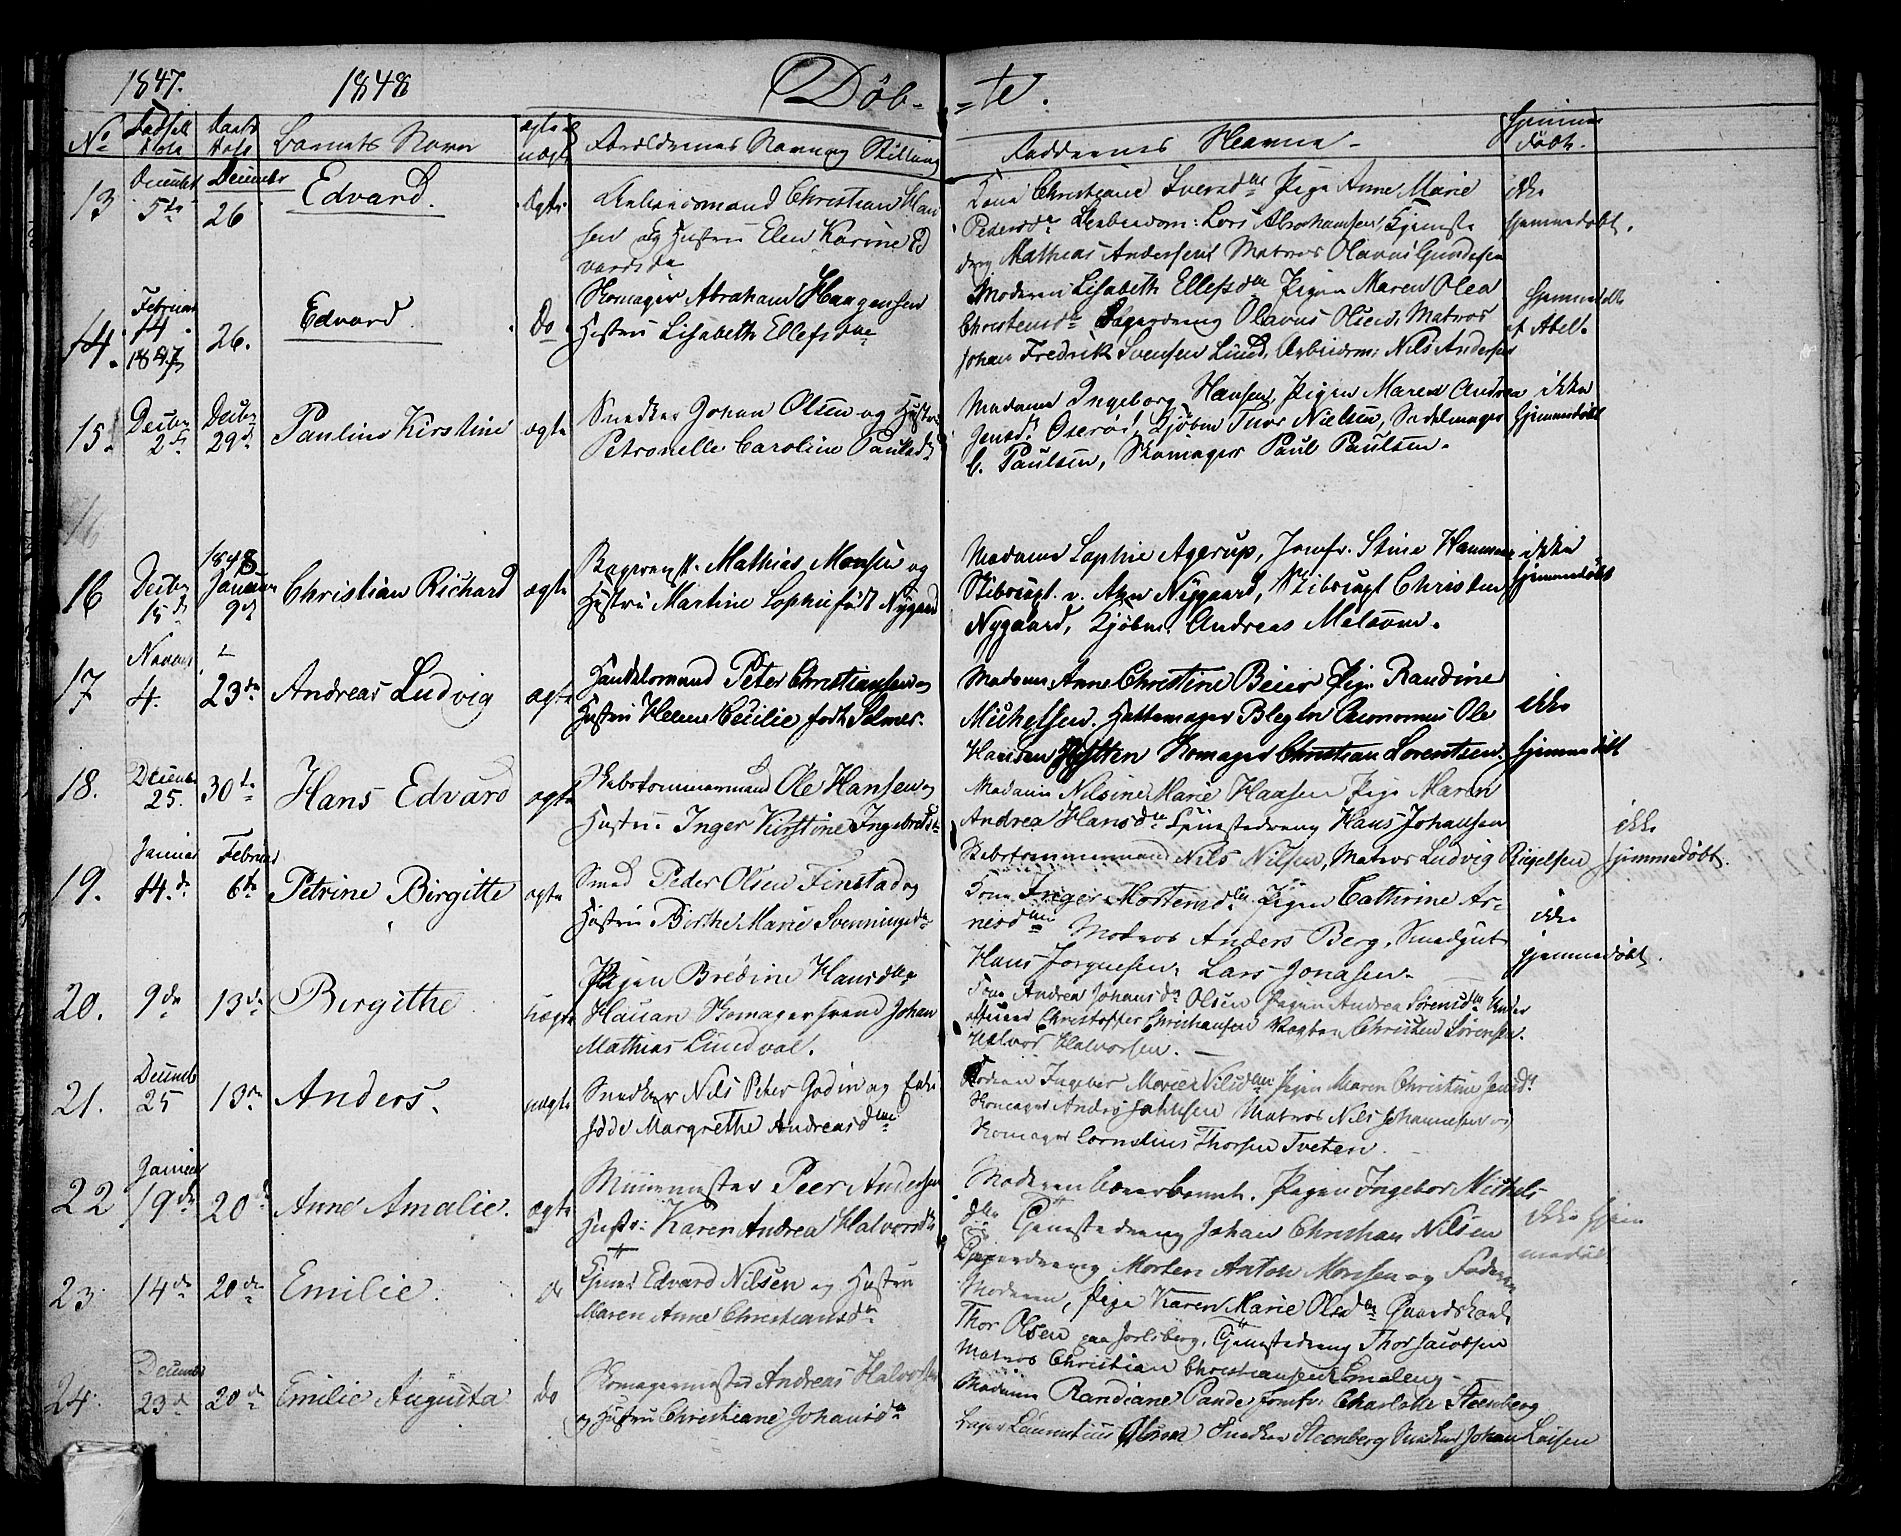 1847. 1848 Døb-te.
No Fødsels Dato Daabs Dato Barnets Navn ægte el. uægte Forældrenes Navn og Stilling Faddernes Navne - Hjemme døbt.
13 December 5te December 26 Edvard. Ægte Arbeidsmand Christian Han
sen og Hustru Elen Karine Ed
vardsda
Kone Christiane Iversdtr Pige Anne Marie
Pedersdtr Arbeidsm: Lars Abrahamsen, Tjeneste
dreng Mathias Andersen Matros Olavus Gundersen
ikke
hjemmedøbt.
14. Februar 14 1847 26. Edvard. Do Skomager Abraham Haagensen
Hustru Lisabeth Ellefsdtr
Moderen Lisabeth Ellefsdtr Pigen Maren Olea
Christensdtr Olavus Olsen, Matros
Johan Fredrik Svensen Lund, Arbeidsm: Nils Andersen
Hjemmedøbt
af Abel.
15. Decbr 2de Decbr 29de Pauline Kirstine ægte Snedker Johan Olsen og Hustru
Petronelle Caroline Paulsdtr
Madame Ingeborg Hansen, Pigen Maren Andrea
Jensd. Oserød, Kjøbm Thor Nielsen, Sadelmager
C. Paulsen, Skomager Paul Paulsen.
ikke
hjemmedøbt
16
16 Decbr 15de 1848 Januar 9de Christian Richard ægte Mathias Monsen og
Hustru Martine Sophie født Nygaard
Madame Sophie Agerup, Jomfr. Stine Hammer
Skibscapt. v. Aken Nygaard, Skibscapt Christen
Nygaard, Kjøbm. Andreas Melsom.
ikke
hjemmedøbt
17 Novbr 4. 23de Andreas Ludvig ægte Handelsmand Peter Christiansen og
Hustru Helene Cecilie født Solmer.
Madam Anne Christine Beier Pige Randine
Michelsen. Hattemager Oeconomus Ole
Hansen Skomager Christian Lorentsen.
ikke
hjemmedøbt
18. December 25. 30te Hans Edvard ægte Skibstømmermand Ole Hansen og
Hustru Inger Kirstine Ingebretsdtr
Madame Nilsine Marie Hansen Pige Maren
Andrea Hansdtr Tjenestedreng Hans Johansen
Skibstømmermand Nils Nilsen, Matros Ludvig Rigelsen
ikke
hjemmedøbt.
19. Januar 14de Februar 6te Petrine Birgitte ægte Smed Peder Olsen Finstad og
Hustru Birthe Marie Svenningsdtr
Kone Inger Mortensdtr. Pigen Cathrine Ar-
nesdtr Matros Anders Berg, Smedgut
Hans Jørgensen. Lars Jonasen.
ikke
hjemmedøbt.
20. 9de 13de Birgithe uægte Pigen Bredine Hansdtr
Hauan Skomagersvend Johan
Mathias Lundval.
Kone Andrea Johansdtr Olsen Pigen Andrea Sørensdtr Under
officeer Christoffer Christiansen Vægter Christen Sørensen.
Halvor Halvorsen. -
21. December 25 13de Anders. uægte Snedker Nils Peter Godin og Enke
Margrethe Andreasdtr
Ingebor Marie Nilsdtr Pigen Maren Christine Jensdtr
Skomager Johnsen Matros Nils Johannesen og
Skomager Cornelius Thorsen Tveten.
22 Januar 19de 20de Anne Amalie. ægte Peer Andersen
Hustr: Karen Andrea Halvorsdtr
Moderen Pigen Ingebor Michels
dtr Tjenestedreng Johan Christian Nilsen
Morten Anton Monsen og Faderen
ikke hjem
medøbt
23. 14de 20de Emilie. do Tjenest Edvard Nilsen og Hustru
Maren Anne Christiansdtr
Moderen, Pige Karen Marie Olsdtr Gaardskarl
Thor Olsen paa Jarlsberg, Tjenestedreng Thor Jacobsen
Matros Christian Christiansen Smaleng -
24. December 23de 20de Emilie Augusta do Skomagermester Andreas Halvorsen
og Hustru Christiane Johansdtr
Madame Randiane Pande Jomfr: Charlotte Steenberg
Lauritius Olsen Snedker Steenberg Snedker Johan Larsen